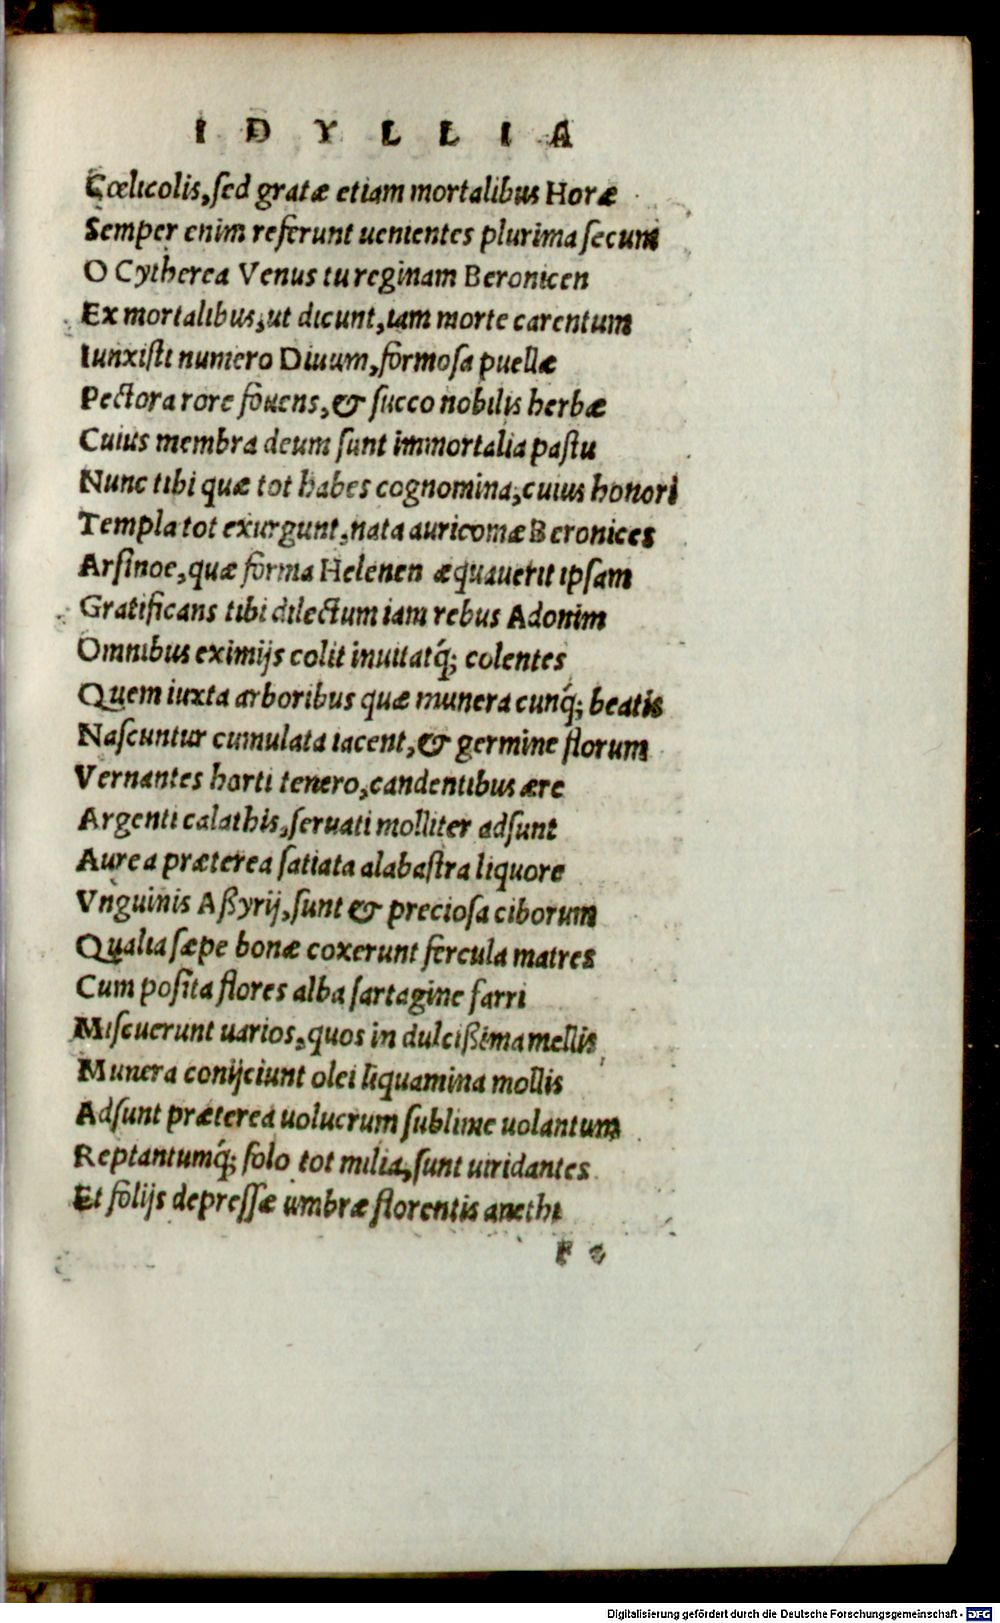 IDYLLIA
Cœlicolis, sed gratæ etiam mortalibus Horæ
Semper enim referunt uenientes plurima secum
O Cytherea Venus tu reginam Beronicen
Ex mortalibus, ut dicunt, iam morte carentum
Iunxisti numero Diuum, formosa puellæ
Pectora rore fouens, & succo nobilis herbæ
Cuius membra deum sunt immortalia pastu
Nunc tibi quæ tot habes cognomina, cuius honori
Templa tot exurgunt, nata auricomæ Beronices
Arsinoe, quæ forma Helenen æquauerit ipsam
Gratificans tibi dilectum iam rebus Adonim
Omnibus eximijs colit inuitatq́; colentes
Quem iuxta arboribus quæ munera cunq́; beatis
Nascuntur cumulata iacent, & germine florum
Vernantes horti tenero, candentibus ære
Argenti calathis, seruati molliter adsunt
Aurea præterea satiata alabastra liquore
Vnguinis Aßyrij, sunt & preciosa ciborum
Qualia sæpe bonæ coxerunt fercula matres
Cum posita flores alba sartagine farri
Miscuerunt uarios, quos in dulcißima mellis
Munera conijciunt olei liquamina mollis
Adsunt præterea uolucrum sublime uolantum
Reptantumq́; solo tot milia, sunt uiridantes
Et folijs depressæ umbræ florentis anethi
F
Digitalisierung gefördert durch die Deutsche Forschungsgemeinschaft - DFG